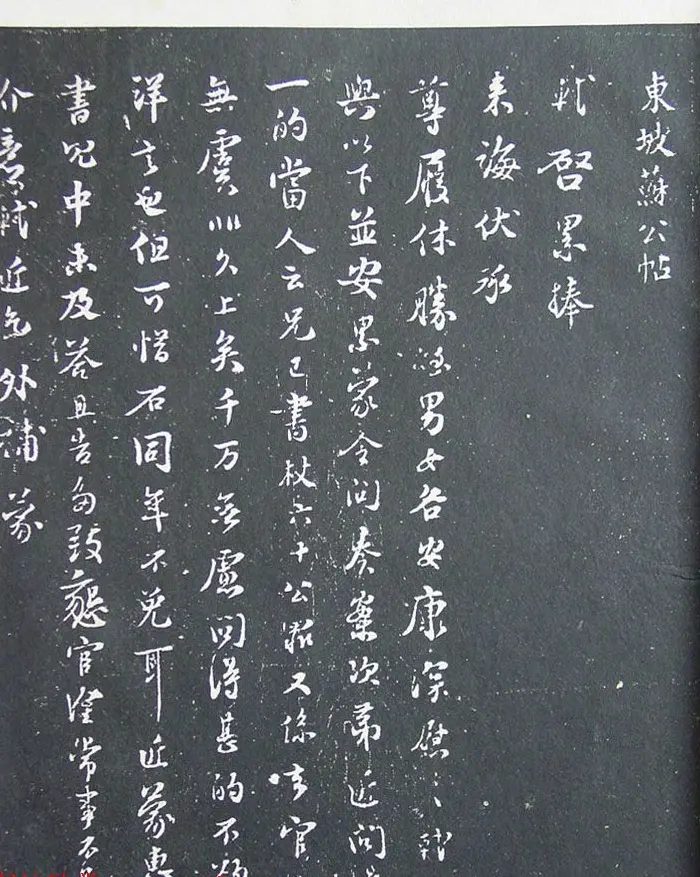 東坡蘇公帖
軾啓累捧
来誨伏承
尊履休勝眷男女各安康深慰〻軾
與以下並安累蒙令問奏案次第近問
一的當人云兄已書杖六十公罪又係
無虞非久上矣千万無慮問得甚的不
詳言也但可惜石同年不免耳近蒙惠
書兒中未及答且告為致懇官滿常事不
介意軾近乞外補蒙